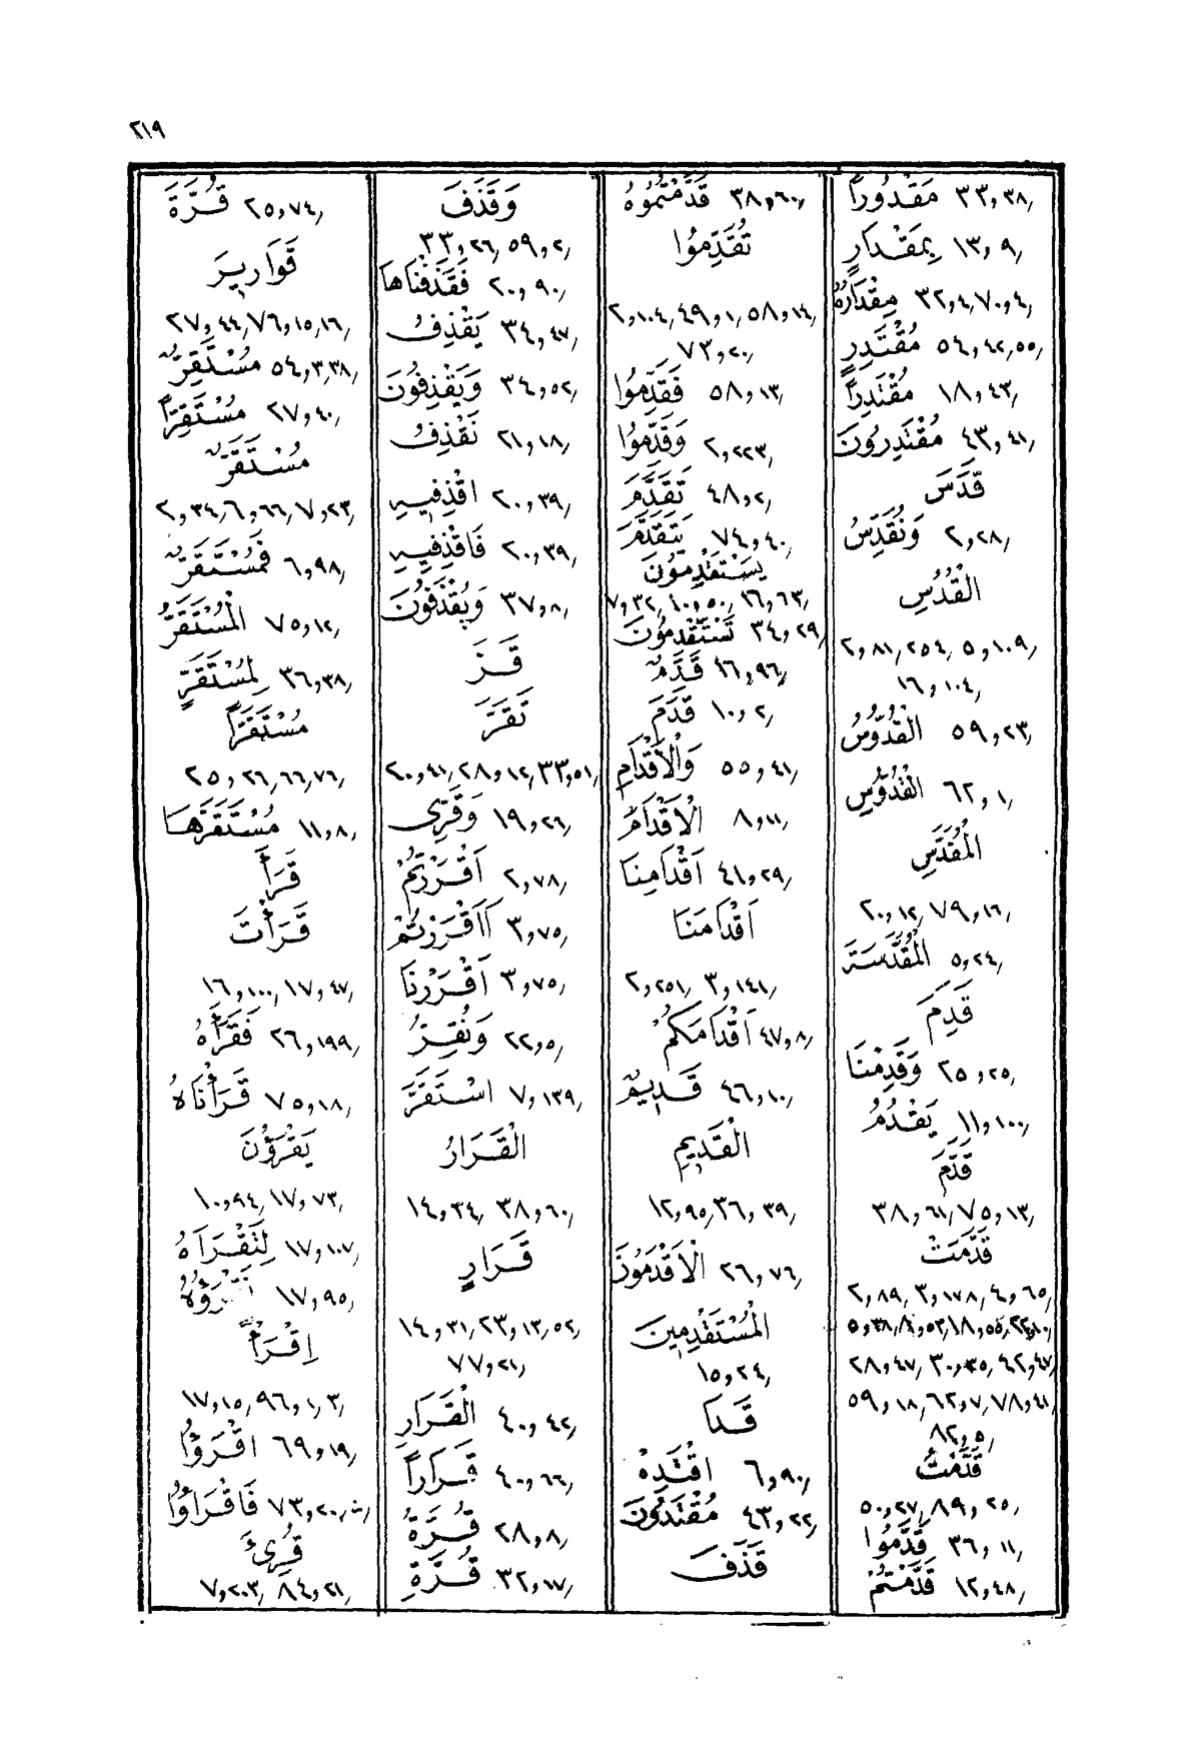 ٢١٩
مَقْدُوراً ٣٣,٣٨
بِمِقْدَارٍ ١٣,٩
مِقْدَارُهُ ٣٢,٤ ٧٠,٤
مُقْتَدِرٍ ٥٤,٤٢,٥٥
مُقْتَدِراً ١٨,٤٣
مُقْتَدِرُونَ ٤٣,٤١
قَدَّسَ
وَنُقَدِّسُ ٢,٢٨
الْقُدُسِ
٢,٨١,٢٥٤ ٥,١٠٩
١٦,١٠٤
الْقُدُّوسُ ٥٩,٢٣
الْقُدُّوسِ ٦٢,١
الْمُقَدَّسِ
٢٠,١٢ ٧٩,١٦
الْمُقَدَّسَةَ ٥,٢٤
قَدِمَ
وَقَدِمْنَا ٢٥,٢٥
يَقْدُمُ ١١,١٠٠
قَدَّمَ
٣٨,٦١ ٧٥,١٣
قَدَّمَتْ
٢,٨٩ ٣,١٧٨ ٤,٦٥
٢٨,٤٧ ٣٠,٣٥ ٤٢,٤٧
٥٩,١٨ ٦٢,٧ ٧٨,٤١
٨٢,٥
قَدَّمْتُ
٥٠,٢٧ ٨٩,٢٥
قَدَّمُوا ٣٦,١١
قَدَّمْتُمْ ١٢,٤٨
قَدَّمْتُمُوهُ ٣٨,٦٠
تُقَدِّمُوا
٢,١٠٤ ٤٩,١ ٥٨,١٤
٧٣,٢٠
فَقَدِّمُوا ٥٨,١٣
وَقَدِّمُوا ٢,٢٢٣
تَقَدَّمَ ٤٨,٢
يَتَقَدَّمَ ٧٤,٤٠
يَسْتَقْدِمُونَ
٧,٣٢ ١٠,٥٠ ١٦,٦٣
تَسْتَقْدِمُونَ ٣٤,٢٩
قَدَمٌ ١٦,٩٦
قَدَمَ ١٠,٢
وَالْأَقْدَامِ ٥٥,٤١
الْأَقْدَامَ ٨,١١
أَقْدَامِنَا ٤١,٢٩
أَقْدَامَنَا
٢,٢٥١ ٣,١٤١
أَقْدَامَكُمْ ٤٧,٨
قَدِيمٌ ٤٦,١٠
الْقَدِيمِ
١٢,٩٥ ٣٦,٣٩
الْأَقْدَمُونَ ٢٦,٧٦
الْمُسْتَقْدِمِينَ
١٥,٢٤
قَدَا
اقْتَدِهْ ٦,٩٠
مُقْتَدُونَ ٤٣,٢٢
قَذَفَ
وَقَذَفَ
٣٣,٢٦ ٥٩,٢
فَقَذَفْنَاهَا ٢٠,٩٠
يَقْذِفُ ٣٤,٤٧
وَيَقْذِفُونَ ٣٤,٥٢
نَقْذِفُ ٢١,١٨
اقْذِفِيهِ ٢٠,٣٩
فَاقْذِفِيهِ ٢٠,٣٩
وَيُقْذَفُونَ ٣٧,٨
قَرَّ
تَقَرَّ
٢٠,٤١ ٢٨,١٢ ٣٣,٥١
وَقَرِّى ١٩,٢٦
أَقْرَرْتُمْ ٢,٧٨
ءَاَقْرَرْتُمْ ٣,٧٥
أَقْرَرْنَا ٣,٧٥
وَنُقِرُّ ٢٢,٥
اسْتَقَرَّ ٧,١٣٩
الْقَرَارُ
١٤,٣٤ ٣٨,٦٠
قَرَارٍ
١٤,٣١ ٢٣,١٣,٥٢
٧٧,٢١
الْقَرَارِ ٤٠,٤٢
قَرَاراً ٤٠,٦٦
قُرَّةُ ٢٨,٨
قُرَّةِ ٣٢,١٧
قُرَّةَ ٢٥,٧٤
قَوَارِيرَ
٢٧,٤٤ ٧٦,١٥,١٦
مُسْتَقِرٌّ ٥٤,٣,٣٨
مُسْتَقِرّاً ٢٧,٤٠
مُسْتَقَرٌّ
٢,٣٤ ٦,٦٦ ٧,٢٣
فَمُسْتَقَرٌّ ٦,٩٨
الْمُسْتَقَرُّ ٧٥,١٢
لِمُسْتَقَرٍّ ٣٦,٣٨
مُسْتَقَرّاً
٢٥,٢٦,٦٦,٧٦
مُسْتَقَرَّهَا ١١,٨
قَرَأَ
قَرَأْتَ
١٦,١٠٠ ١٧,٤٧
فَقَرَأَهُ ٢٦,١٩٩
قَرَأْنَاهُ ٧٥,١٨
يَقْرَؤُنَ
١٠,٩٤ ١٧,٧٣
لِتَقْرَأَهُ ١٧,١٠٧
١٧,٩٥
اِقْرَأْ
١٧,١٥ ٩٦,١,٣
اقْرَؤُا ٦٩,١٩
فَاقْرَؤُا ٧٣,٢٠
قُرِئَ
٧,٢٠٣ ٨٤,٢١